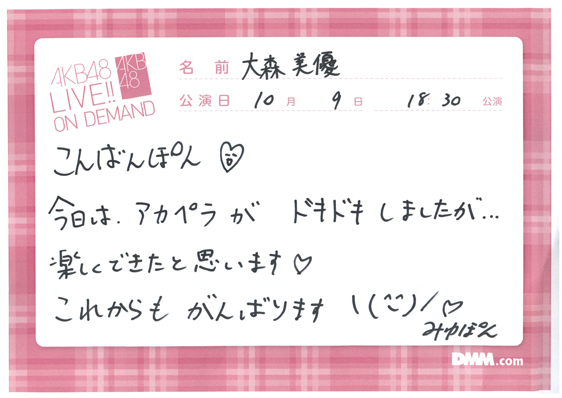 AKB48
LIVE!!
ON DEMAND
AKB
48
名前 大森美優
公演日 10月 9日 18:30 公演
こんばんぽん♡
今日は、アカペラが ドキドキしましたが...
楽しくできたと思います♡
これからも がんばります \(^^)/♡
みゆぽん
DMM.com